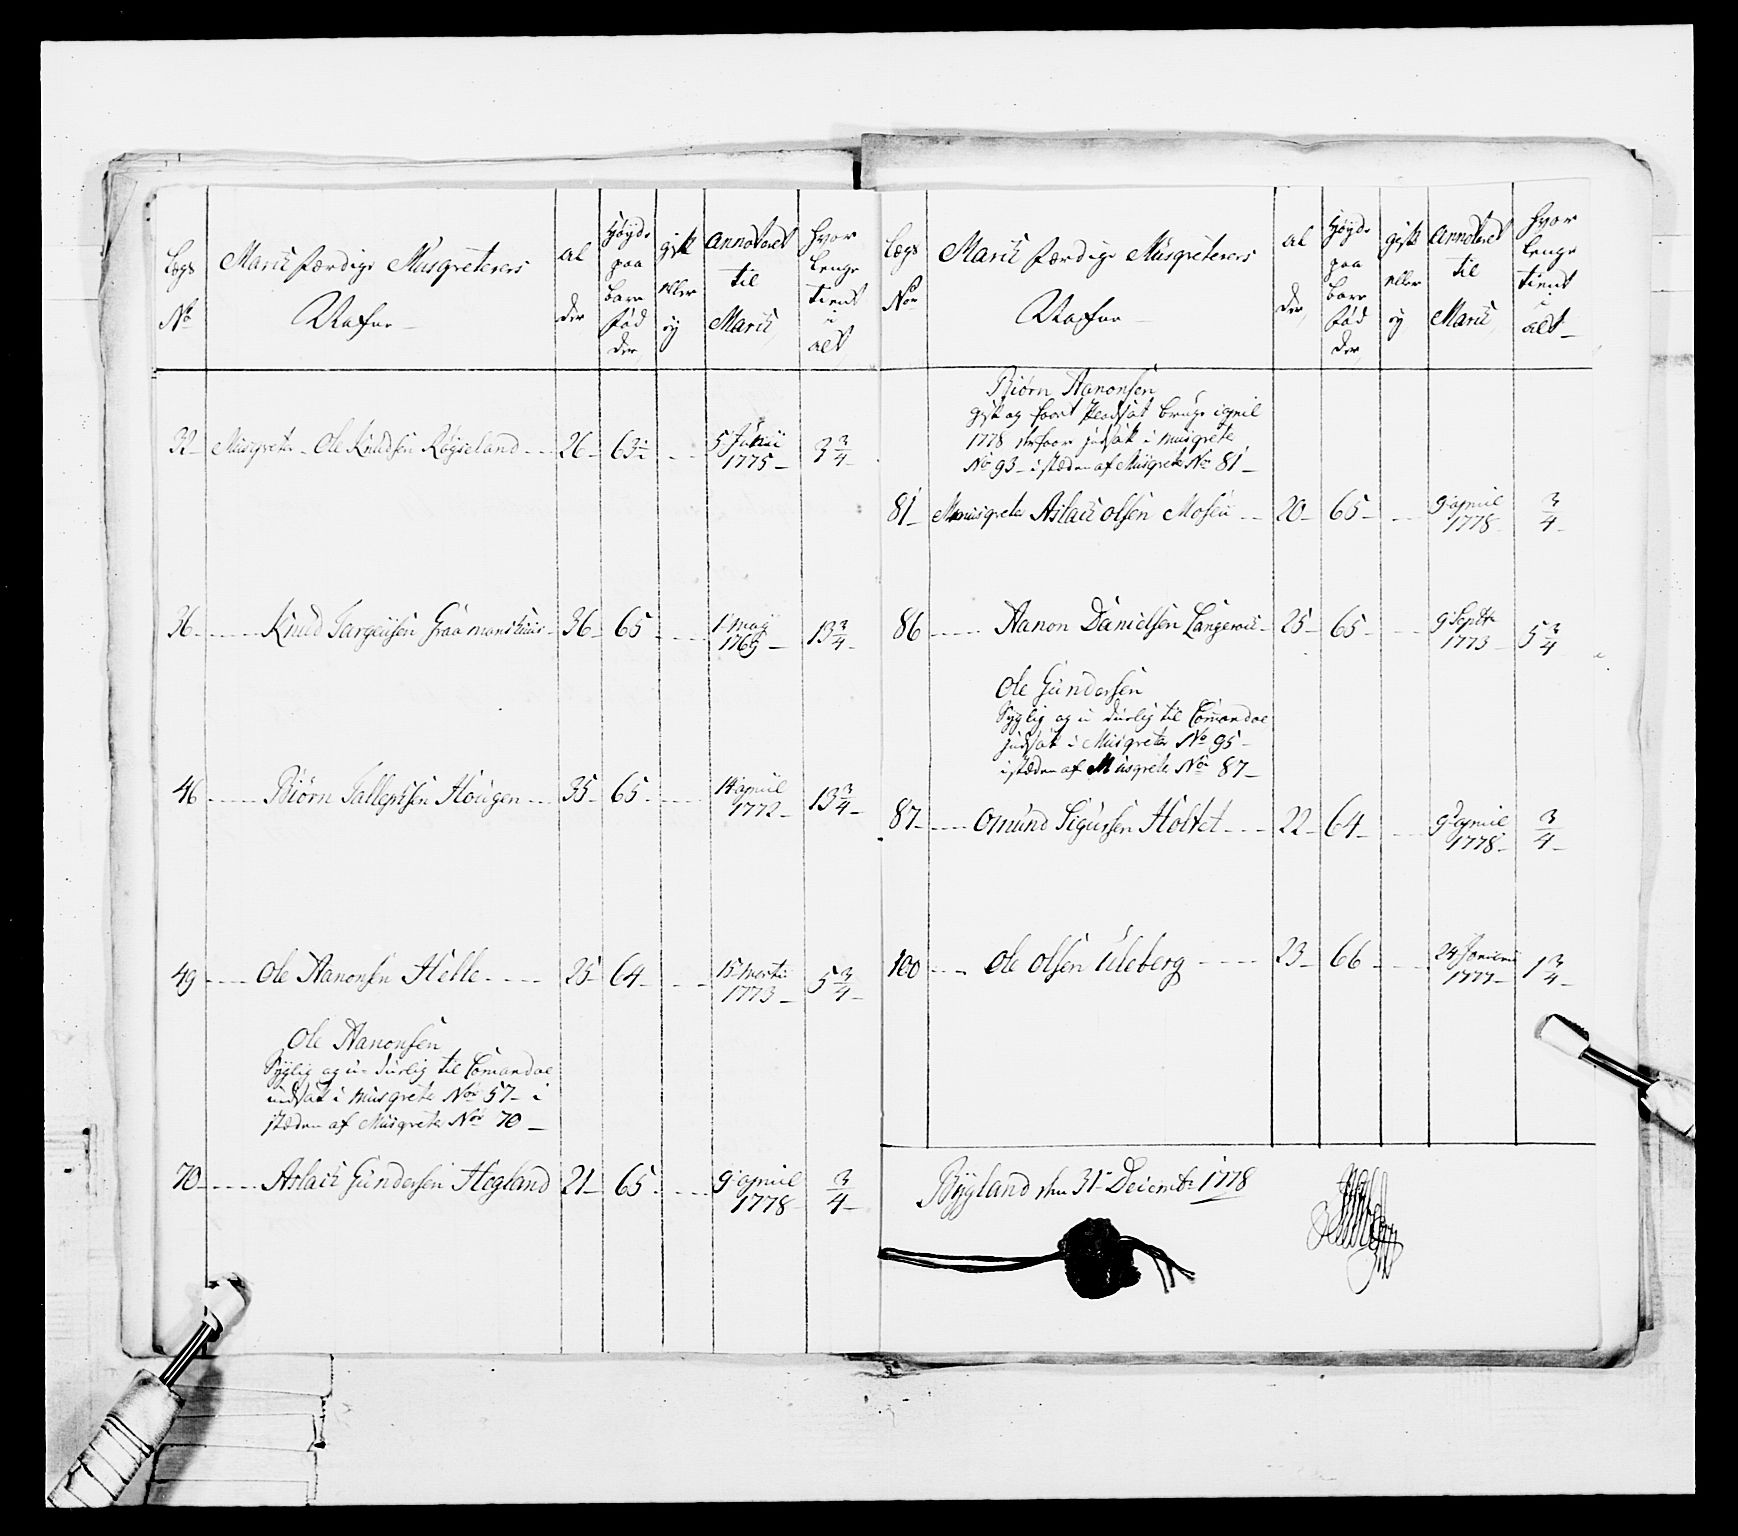 Lægs No
Marck færdige Musqveterers Nafne
al der
Høyde paa bare fød der
gift eller ey
Annoteret til Marck
hvor lenge tient i alt
32 Musqveter Ole Knudsen Røyseland 26 63½ 5 Junii 1775 3 3/4
36 Knud Targeusen 36 65 1 May 1765 13 3/4
46 Biørn Tallepsen Hougen 35 65 14 april 1772 13 3/4
49 Ole Aanonsen Helle 25 64 15 Marti 1773 5 3/4
Ole Aanonsen
Syglig og u-durlig til Comandoe
indsat i Musqveter No 57 i
stæden af Musqveter No 70
70 Aslack Gundersen Hegland 21 65 9 april 1778 3/4
Lægs No
Marck færdige Musqveterers Nafne
al der
Høyde paa bare fød der
gift eller ey
Annoteret til Marck
hvor lenge tient i alt
Biørn Aanonsen
gift og faaet Pladsat bruge april
1778 derfoor indsat i musqvete
No 93 i stæden af Musqvete No 81
81 Musqveter Aslack Olsen Moseu 20 65 9 april 1778 3/4
86 Aanon Danielsen Langerack 25 65 9 Septbr 1773 5 3/4
Ole Gundersen
Syglig og u durlig til Comandoe
indsat i Musqveter No 95
i stæden af Musqvete No 87
87 Omund Sigursen Holtet 22 64 9 april 1778 3/4
100 Ole Olsen Uleberg 23 66 24 Januarii 1777 1 3/4
Bygland den 31 Decembr 1778